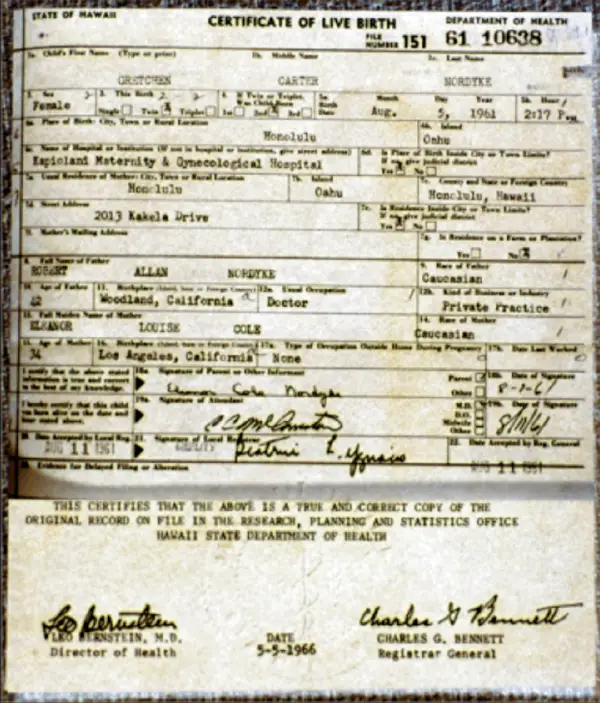 STATE OF HAWAII CERTIFICATE OF LIVE BIRTH DEPARTMENT OF HEALTH
FILE NUMBER 151 61 10638
1a. Child's First Name (Type or print) 1b. Middle Name 1c. Last Name
GRETCHEN CARTER NORDYKE
2. Sex 3. This Birth 4. If Twin or Triplet, Was Child Born 5a. Birth Date Month Day Year 5b. Hour
Female Single Twin X Triplet 1st 2nd 3rd Aug. 5, 1961 2:17 P.M.
6a. Place of Birth: City, Town or Rural Location 6b. Island
Honolulu Oahu
6c. Name of Hospital or Institution (If not in hospital or institution, give street address) 6d. Is Place of Birth Inside City or Town Limits? If no, give judicial district
Kapiolani Maternity & Gynecological Hospital Yes X No
7a. Usual Residence of Mother: City, Town or Rural Location 7b. Island 7c. County and State or Foreign Country
Honolulu Oahu Honolulu, Hawaii
7d. Street Address 7e. Is Residence Inside City or Town Limits? If no, give judicial district
2013 Kakela Drive Yes X No
7f. Mother's Mailing Address 7g. Is Residence on a Farm or Plantation?
Yes No X
8. Full Name of Father 9. Race of Father
ROBERT ALLAN NORDYKE Caucasian
10. Age of Father 11. Birthplace (Island, State or Foreign Country) 12a. Usual Occupation 12b. Kind of Business or Industry
42 Woodland, California Doctor Private Practice
13. Full Maiden Name of Mother 14. Race of Mother
ELEANOR LOUISE COLE Caucasian
15. Age of Mother 16. Birthplace (Island, State or Foreign Country) 17a. Type of Occupation Outside Home During Pregnancy 17b. Date Last Worked
34 Los Angeles, California None
I certify that the above stated information is true and correct to the best of my knowledge. 18a. Signature of Parent or Other Informant Parent Other 18b. Date of Signature
Eleanor Cole Nordyke
I hereby certify that this child was born alive on the date and hour stated above. 19a. Signature of Attendant M.D. D.O. Midwife Other 19b. Date of Signature
8/11/61
20. Date Accepted by Local Reg. 21. Signature of Local Registrar 22. Date Accepted by Reg. General
AUG 11 1961 AUG 11 1961
23. Evidence for Delayed Filing or Alteration
THIS CERTIFIES THAT THE ABOVE IS A TRUE AND CORRECT COPY OF THE
ORIGINAL RECORD ON FILE IN THE RESEARCH, PLANNING AND STATISTICS OFFICE
HAWAII STATE DEPARTMENT OF HEALTH
Leo Bernstein Charles G Bennett
LEO BERNSTEIN, M.D. DATE CHARLES G. BENNETT
Director of Health 5-5-1966 Registrar General